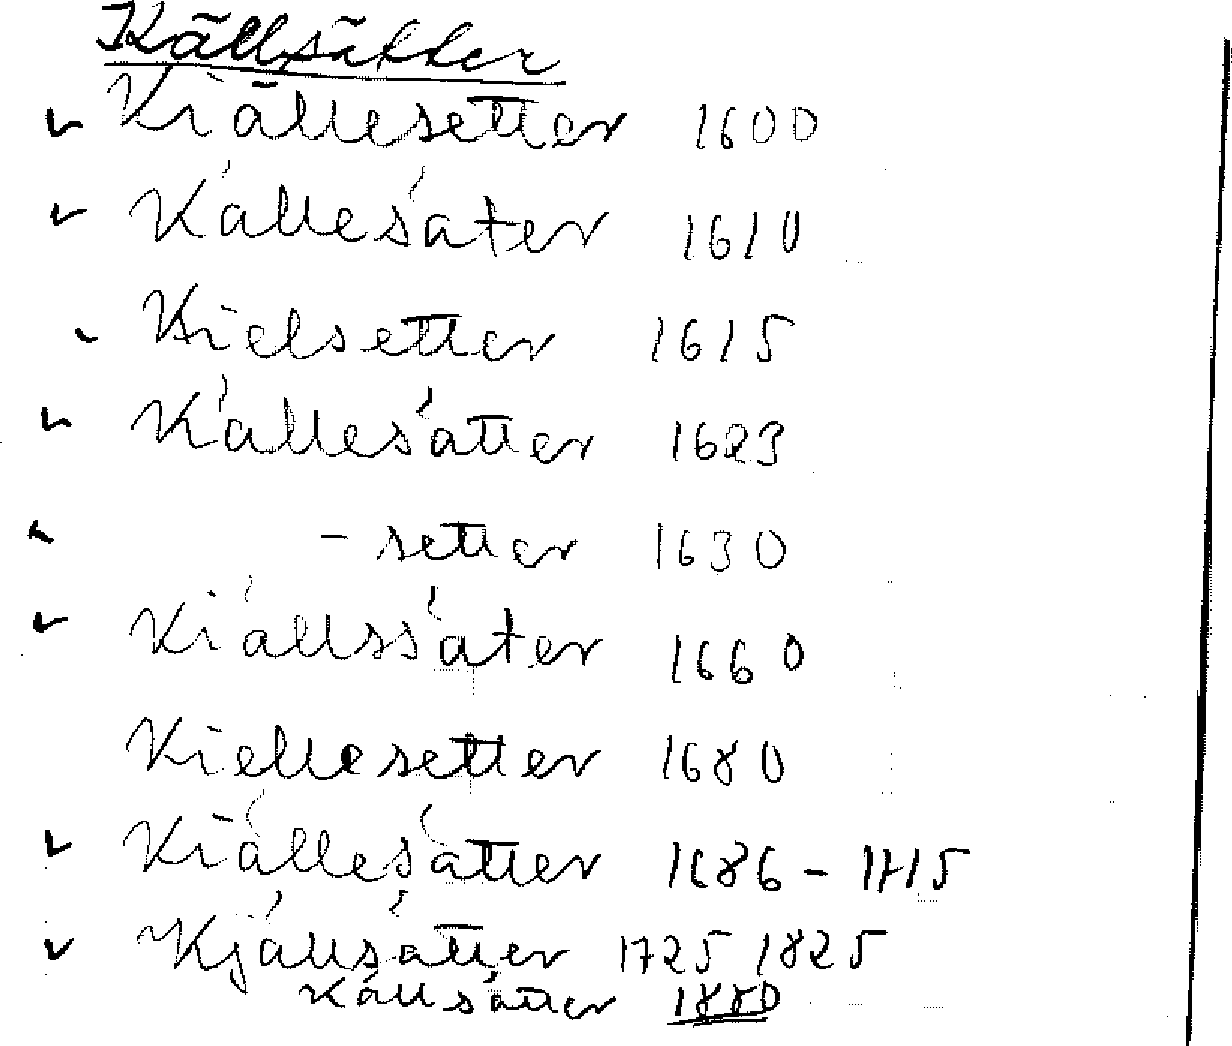 Källsätter
Kiällesetter 1600
Källesäter 1610
Kielsetter 1615
Källesätter 1623
- setter 1630
Kiällssäter 1660
Kiellesetter 1680
Kiällesätter 1686 - 1715
Kjällsätter 1725 1825
Källsätter 1880